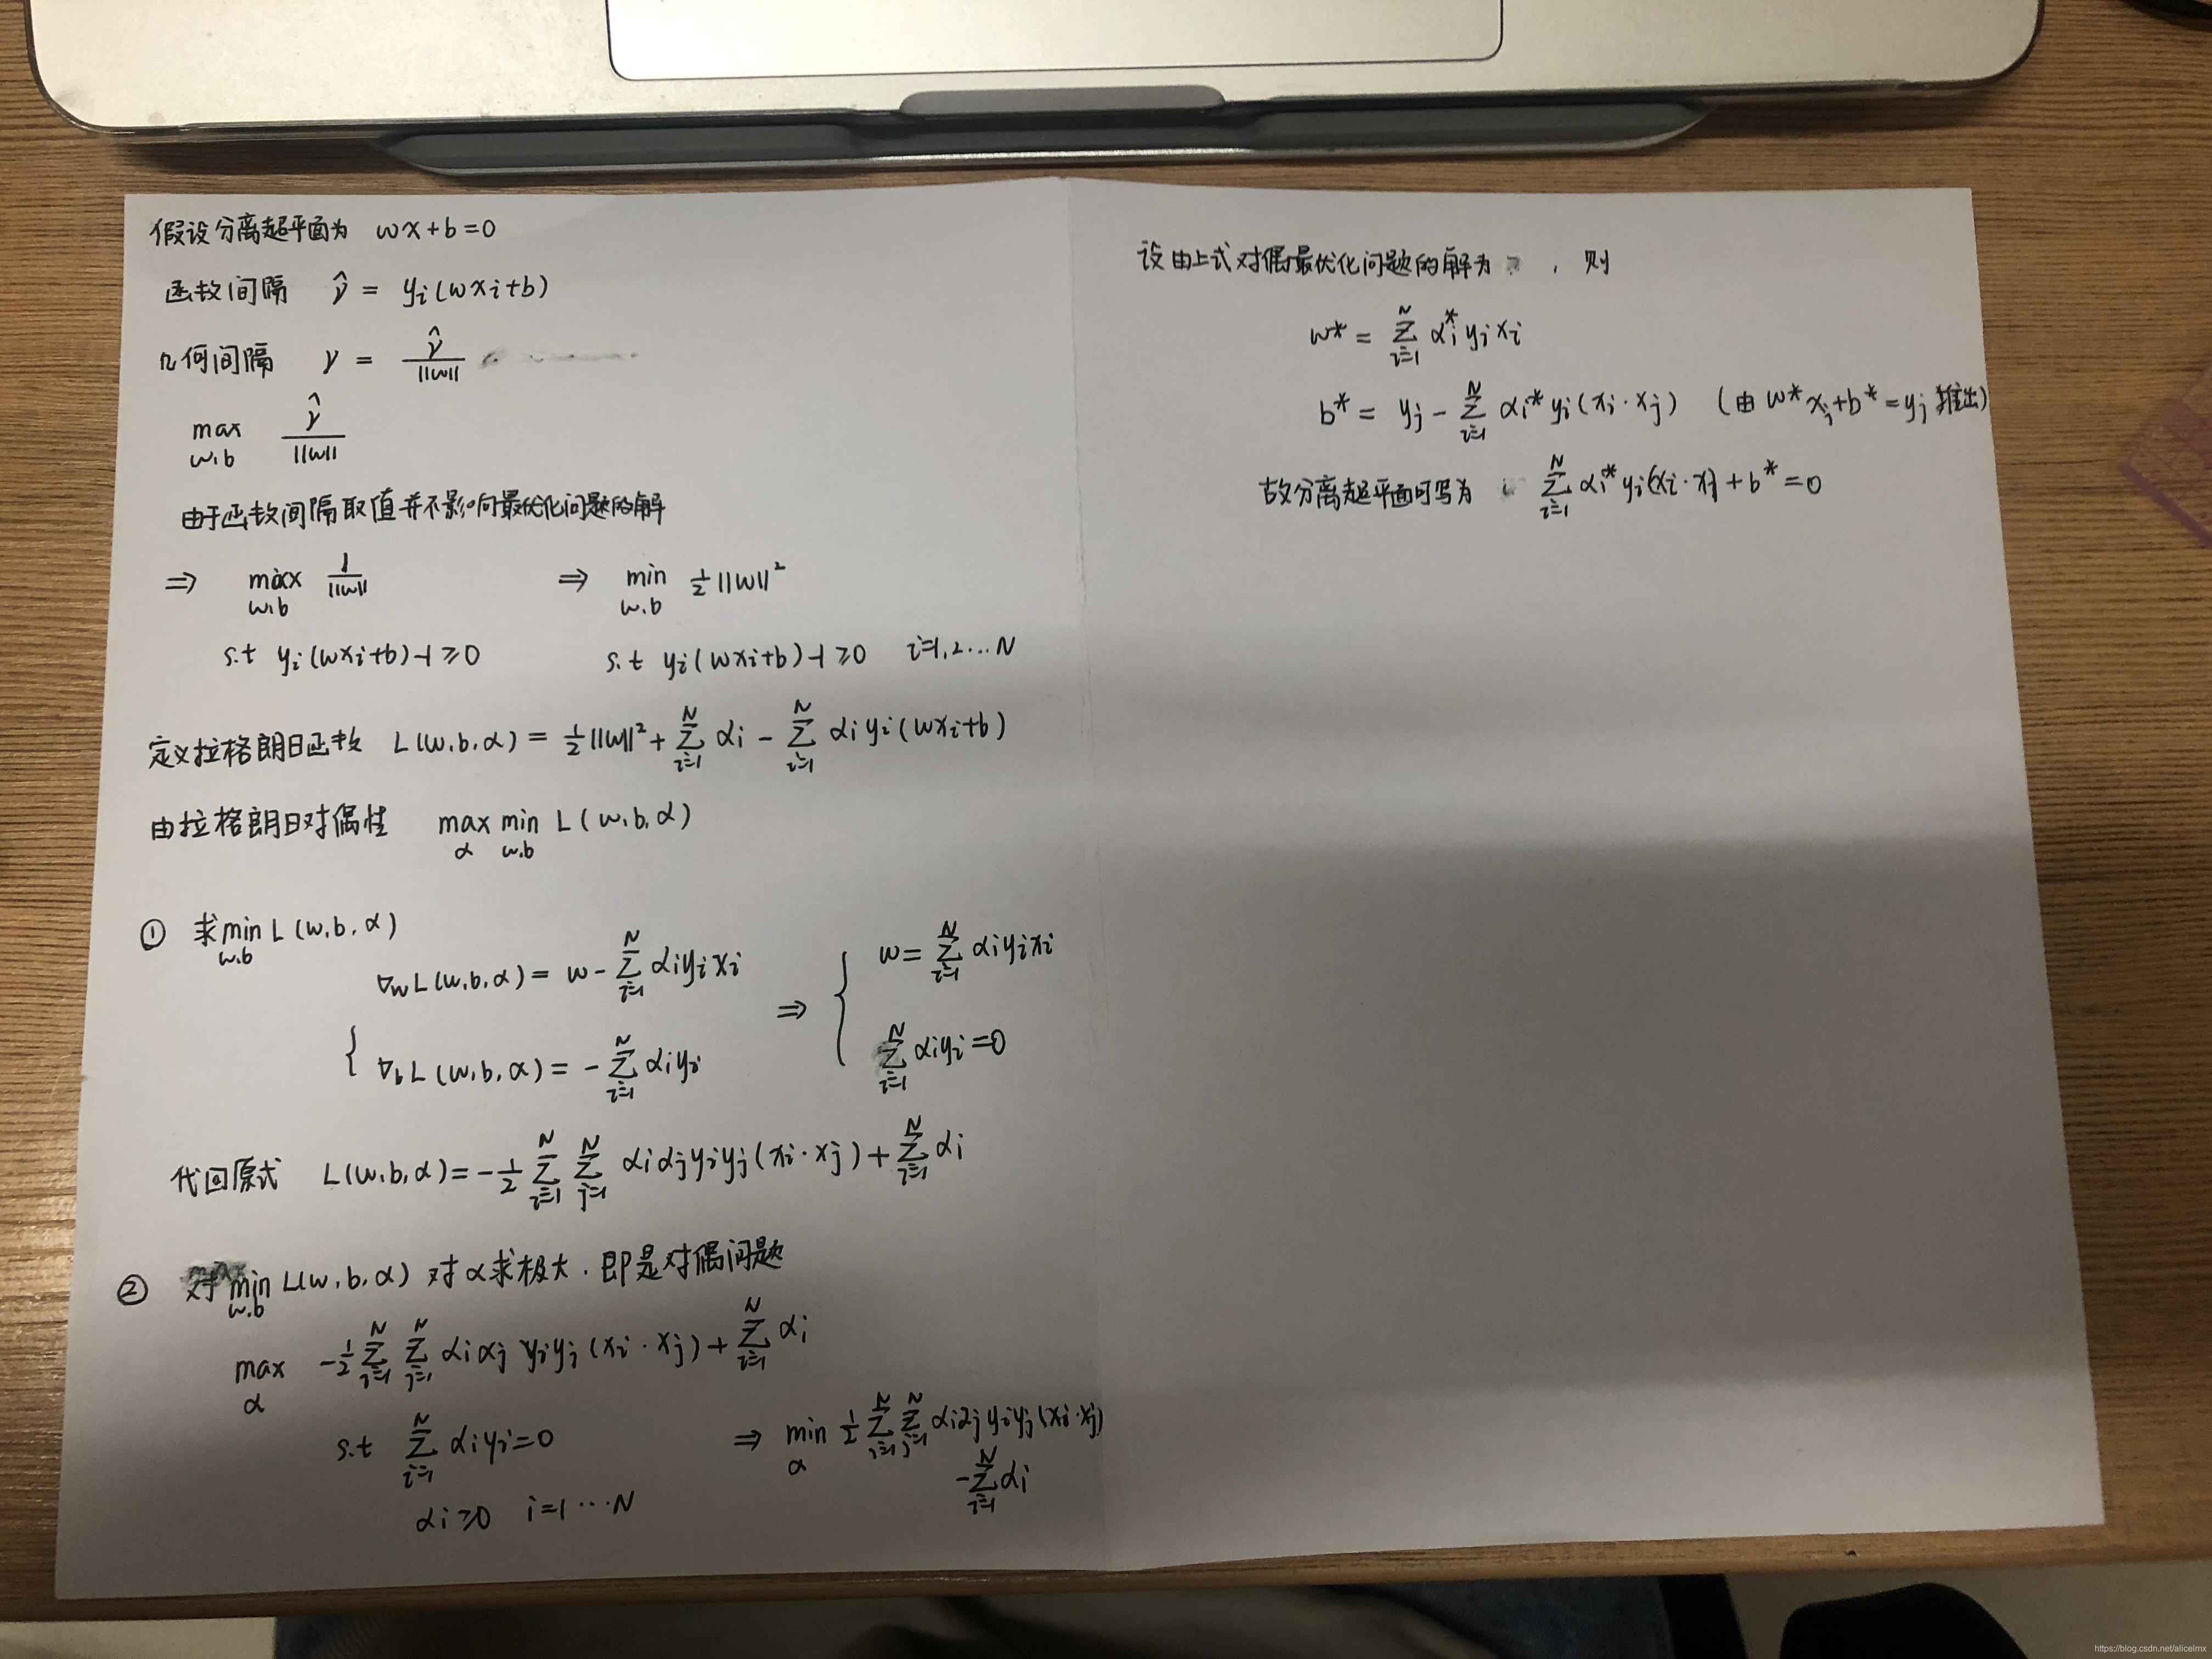 假设分离超平面为 wx+b=0
函数间隔 γ̂ = yi(wxi+b)
几何间隔 γ = γ̂/||w||
max w,b γ̂/||w||
由于函数间隔取值并不影响最优化问题的解
⇒ max w,b 1/||w|| ⇒ min w,b 1/2||w||²
s.t yi(wxi+b)-1≥0 s.t yi(wxi+b)-1≥0 i=1,2...N
定义拉格朗日函数 L(w,b,α) = 1/2||w||² + Σ_{i=1}^{N} αi - Σ_{i=1}^{N} αiyi(wxi+b)
由拉格朗日对偶性 max α min w,b L(w,b,α)
① 求 min w,b L(w,b,α)
∇wL(w,b,α) = w - Σ_{i=1}^{N} αiyixi ⇒ { w = Σ_{i=1}^{N} αiyixi
{ ∇bL(w,b,α) = - Σ_{i=1}^{N} αiyi Σ_{i=1}^{N} αiyi=0
代回原式 L(w,b,α) = -1/2 Σ_{i=1}^{N} Σ_{j=1}^{N} αiαjyiyj(xi·xj) + Σ_{i=1}^{N} αi
② 对 min w,b L(w,b,α) 对α求极大.即是对偶问题
max α -1/2 Σ_{i=1}^{N} Σ_{j=1}^{N} αiαjyiyj(xi·xj) + Σ_{i=1}^{N} αi
s.t Σ_{i=1}^{N} αiyi=0 ⇒ min α 1/2 Σ_{i=1}^{N} Σ_{j=1}^{N} αiαjyiyj(xi·xj)
- Σ_{i=1}^{N} αi
αi≥0 i=1...N
设由上式对偶最优化问题的解为 , 则
w* = Σ_{i=1}^{N} αi*yjxi
b* = yj - Σ_{i=1}^{N} αi*yi(xi·xj) (由w*xj+b*=yj推出)
故分离超平面可写为 Σ_{i=1}^{N} αi*yi(xi·x)+b*=0
https://blog.csdn.net/alicelmx